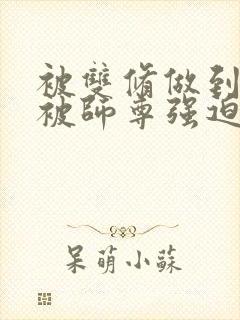 被雙脩做到
被師尊强迫
呆萌小蘇